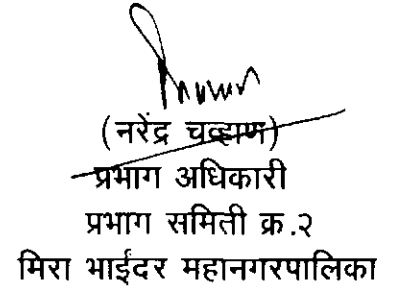 (नरेंद्र चव्हाण)
प्रभाग अधिकारी
प्रभाग समिती क्र.२
मिरा भाईंदर महानगरपालिका